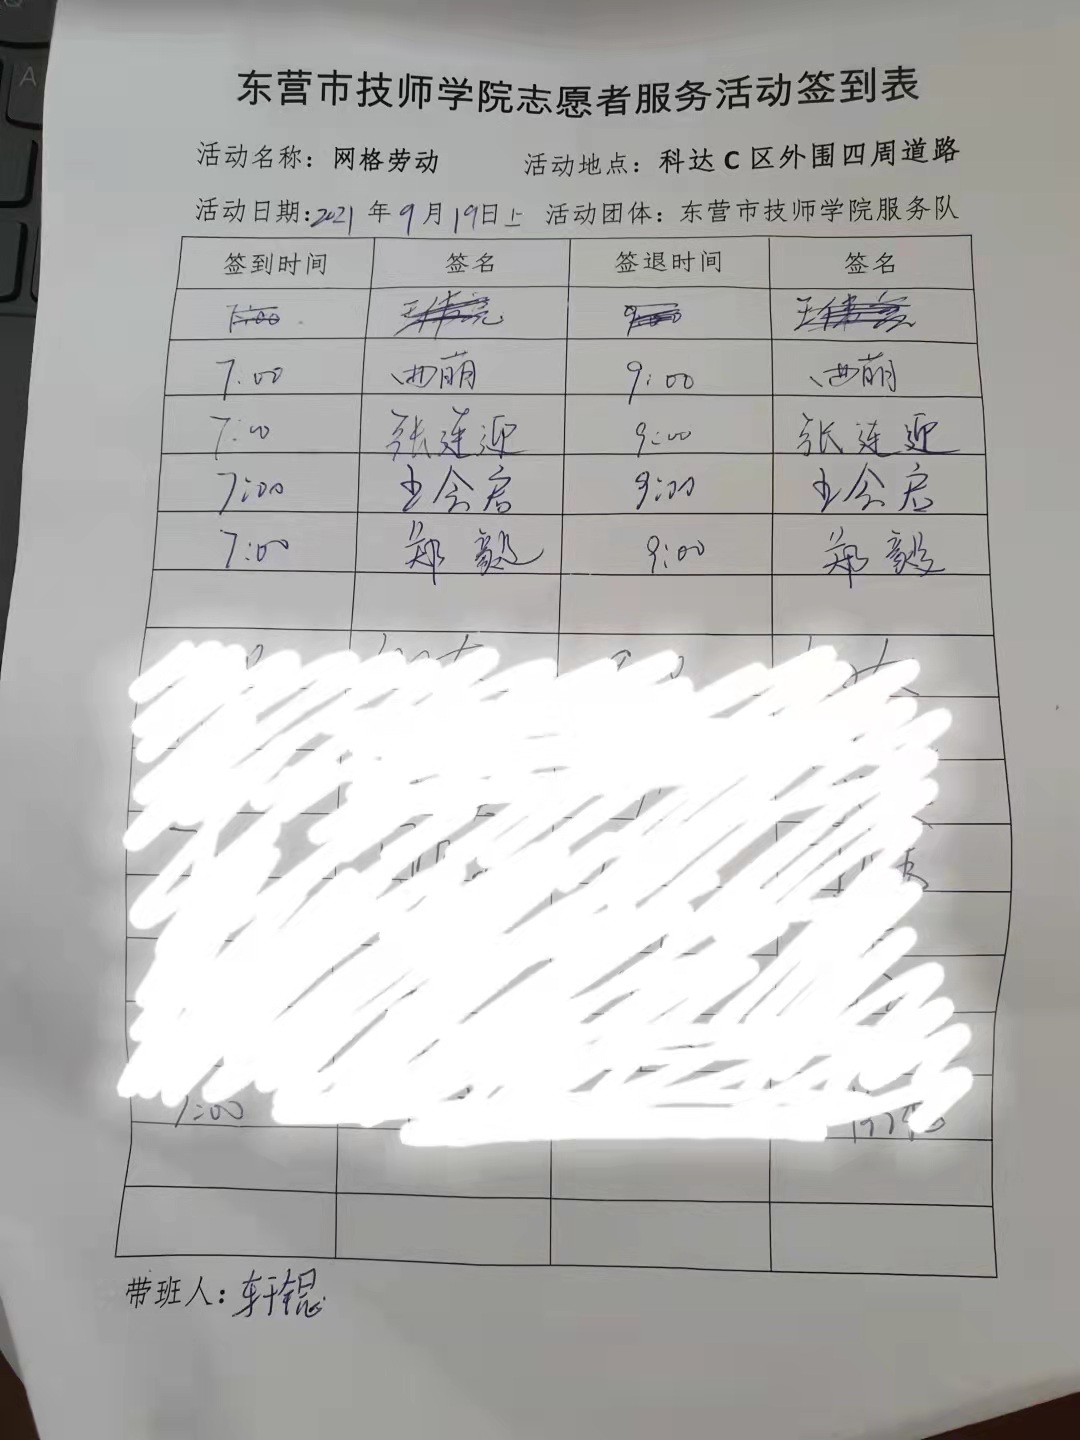 东营市技师学院志愿者服务活动签到表
活动名称：网格劳动 活动地点：科达 C 区外围四周道路
活动日期:2021 年 9 月 19日上 活动团体：东营市技师学院服务队
签到时间 签名 签退时间 签名
7:00 9:00
7:00 西萌 9:00 西萌
7:00 张连迎 9:00 张连迎
7:00 王会启 9:00 王会启
7:00 郑毅 9:00 郑毅
7:00
带班人：轩锟